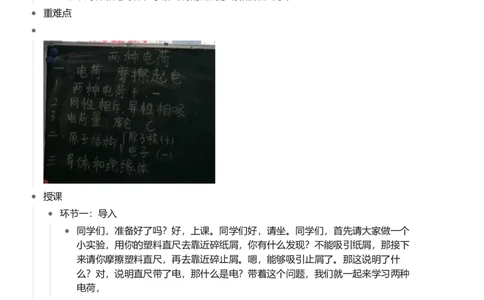 重难点
两种电荷
一、电荷 摩擦起电
1 两种电荷 +、-
2 同性相斥,异性相吸
3 电荷量: 库仑 C
二、原子结构 原子核(+)
电子 (-)
三、导体和绝缘体
授课
环节一：导入
同学们，准备好了吗？好，上课。同学们好，请坐。同学们，首先请大家做一个
小实验，用你的塑料直尺去靠近碎纸屑，你有什么发现？不能吸引纸屑，那接下
来请你摩擦塑料直尺，再去靠近碎止屑。嗯，能够吸引止屑了。那这说明了什
么？对，说明直尺带了电，那什么是电？带着这个问题，我们就一起来学习两种
电荷，